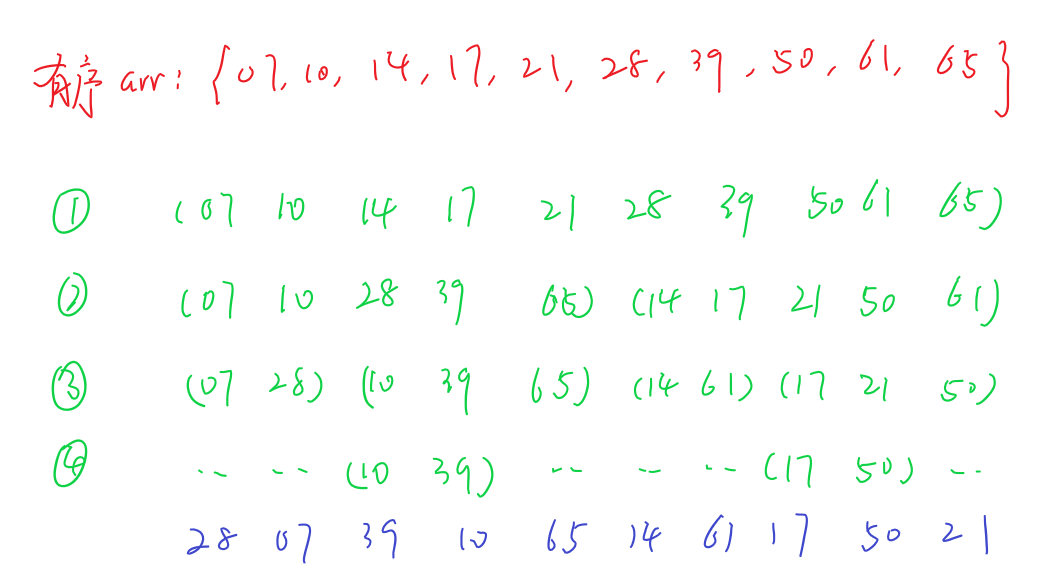 有序 arr: {07, 10, 14, 17, 21, 28, 39, 50, 61, 65}
① (07 10 14 17 21 28 39 50 61 65)
② (07 10 28 39 65) (14 17 21 50 61)
③ (07 28) (10 39 65) (14 61) (17 21 50)
④ .. .. (10 39) .. .. .. (17 50) ..
28 07 39 10 65 14 61 17 50 21